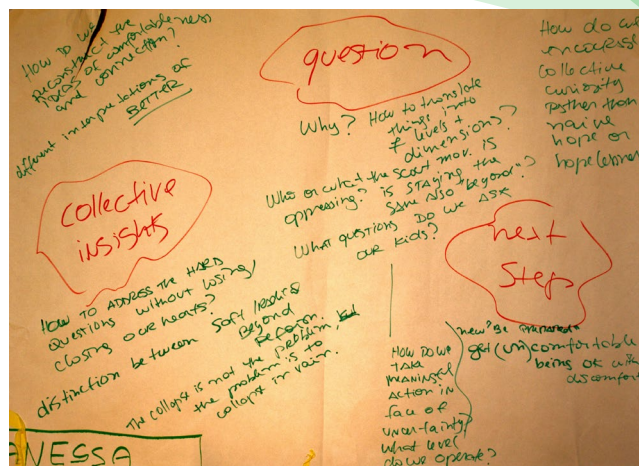 How do we
Reconstruct the
ideas of comfortableness
and connection?
different interpretations of
BETTER
question
Why? How to translate
things into
levels +
dimensions?
Who or what the Scout mov. is
oppressing? is STAYING the
same also "beyond"?
What questions Do we ASK
our kids?
How do we
encourage
collective
curiosity
rather than
naive
hope or
hopelessness
collective
insights
How to ADDRESS THE HARD
questions without losing/
closing our hearts?
distinction between Soft/Radical
Beyond
Reform.
The collapse is not the problem,
the problem is to
collapse in vain.
next
Steps
new "Be prepared"
get (un)comfortable
being ok with
discomfort
How Do we
TAKE
MEANINGFUL
ACTION in
face of
uncertainty?
What level
do we operate?
ANESSA